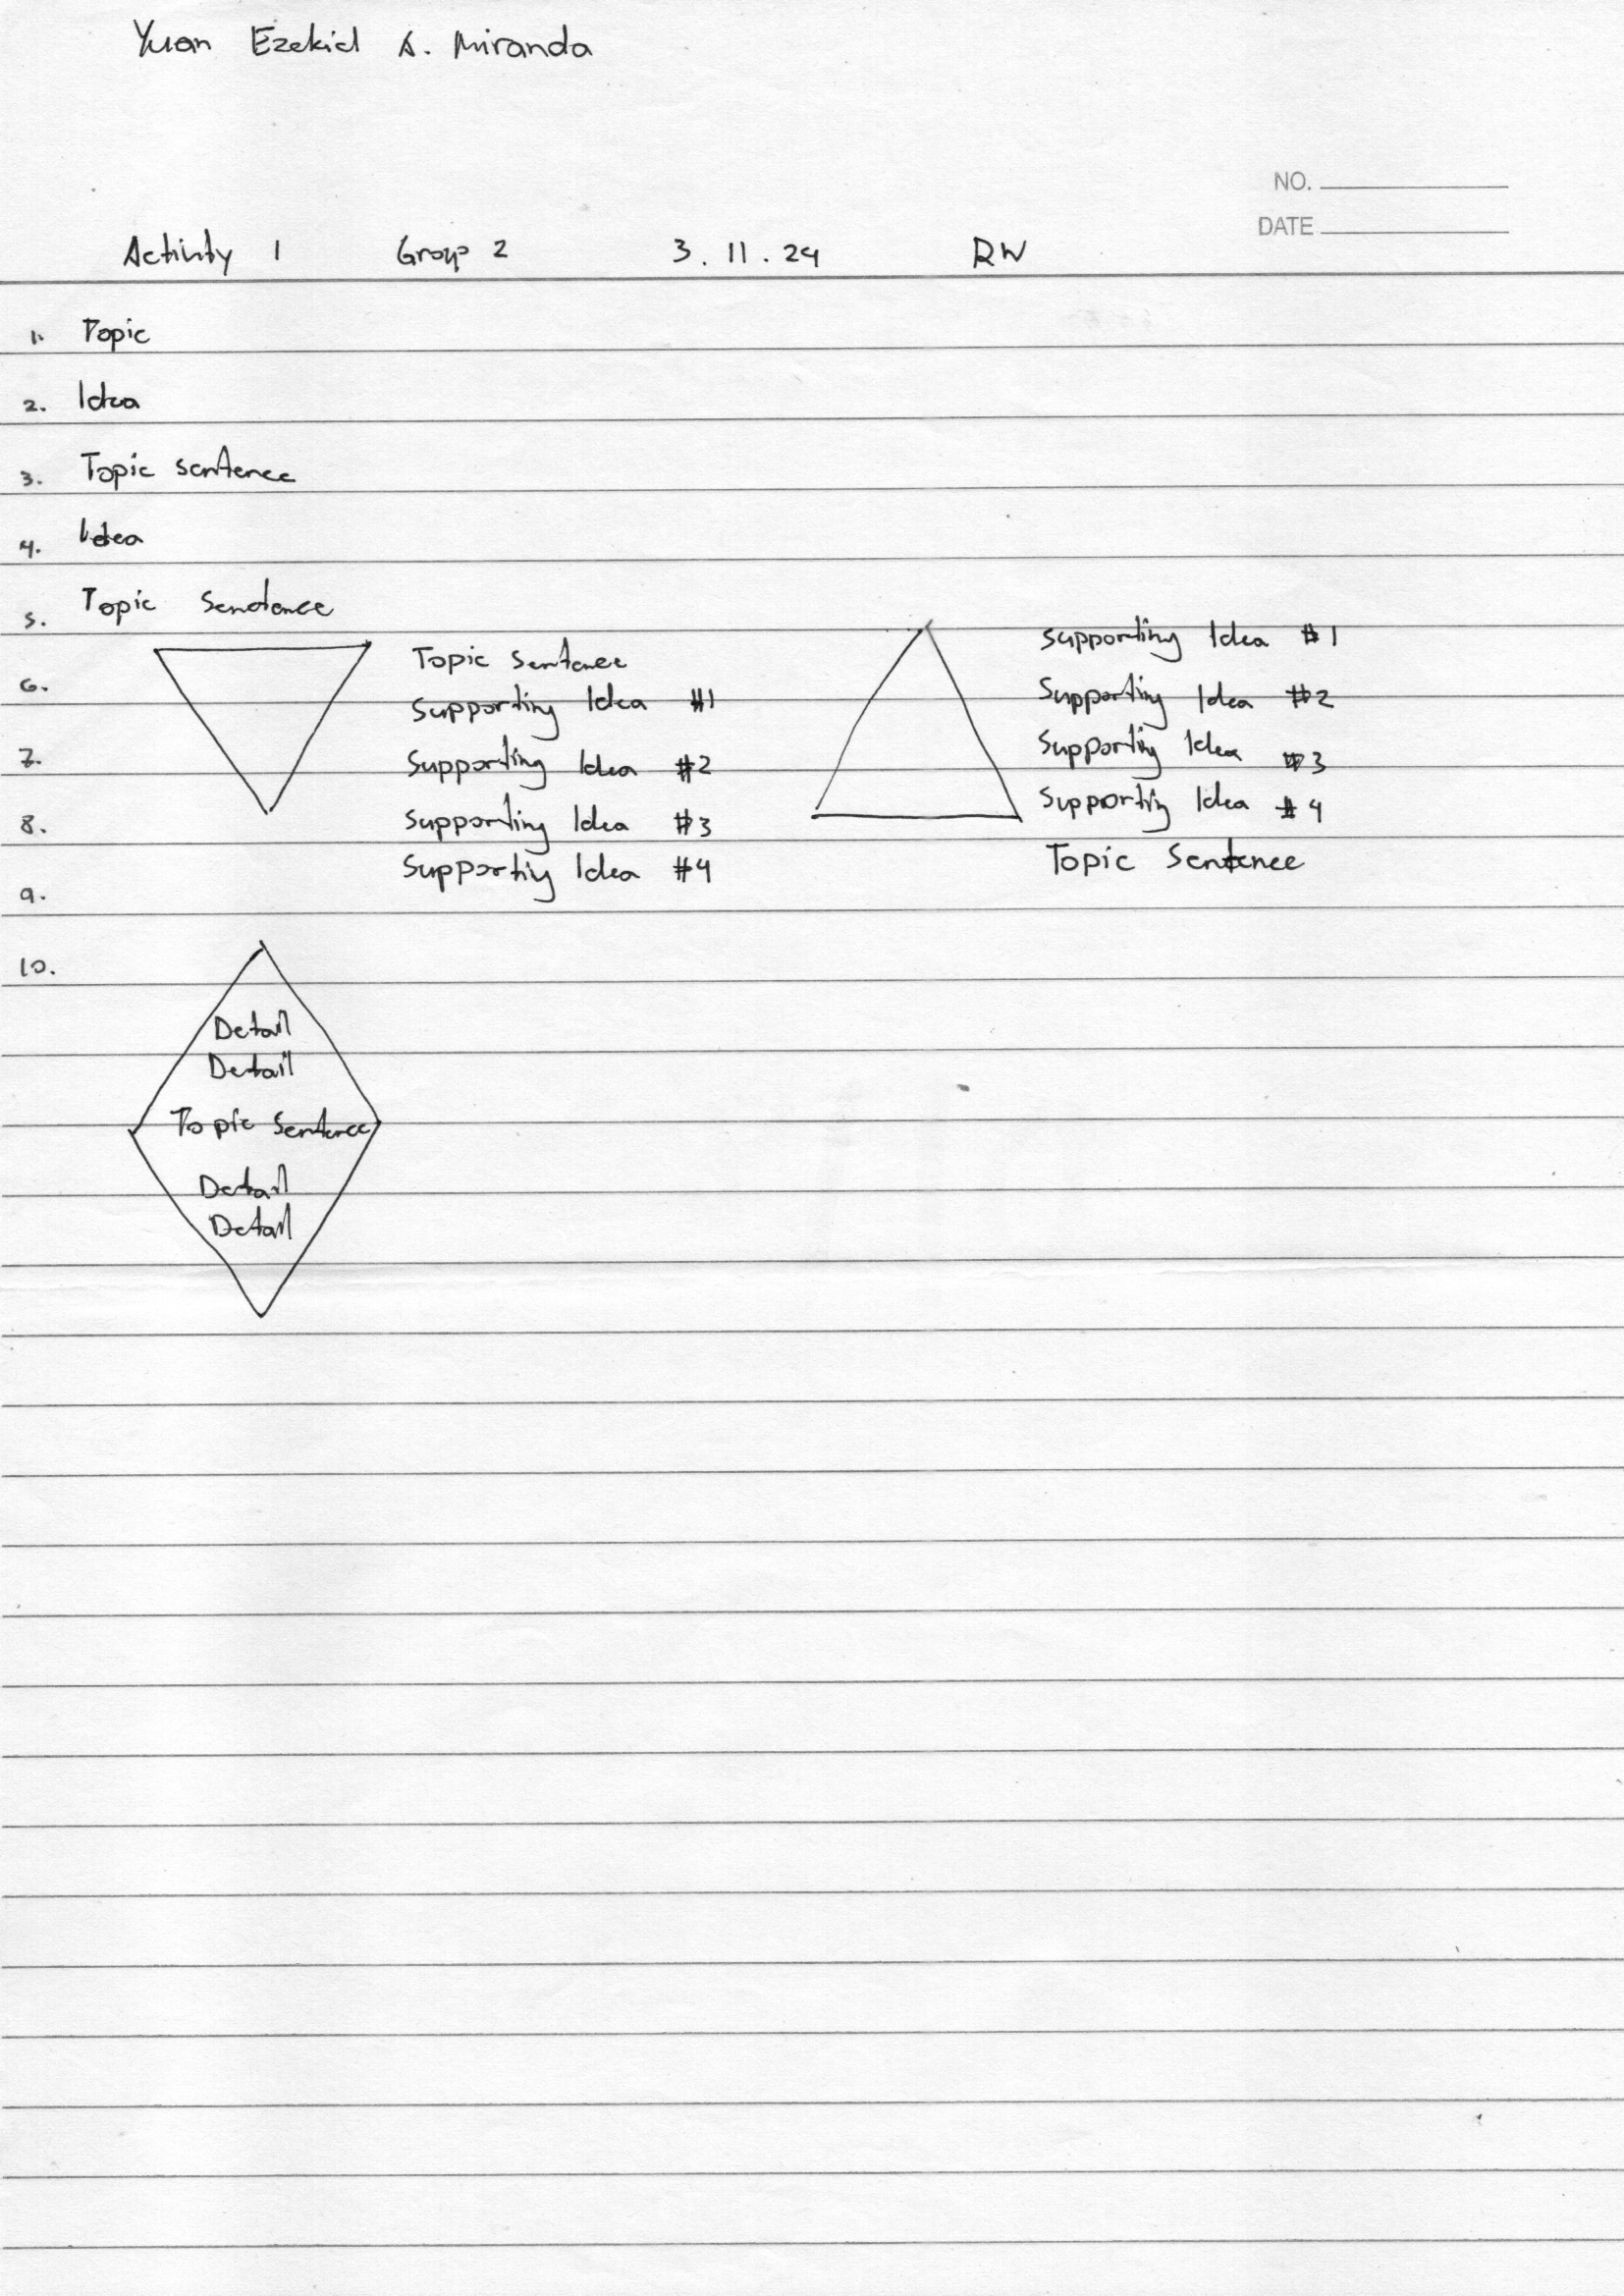 Yuan Ezekiel A. Miranda
NO.
DATE
Activity 1 Group 2 3.11.24 RW
1. Topic
2. Idea
3. Topic sentence
4. Idea
5. Topic Sendtence
6.
7.
8.
9.
10.
Topic Sentence
Supporting Idea #1
Supporting Idea #2
Supporting Idea #3
Supporting Idea #4
Supporting Idea #1
Supporting Idea #2
Supporting Idea #3
Supporting Idea #4
Topic Sentence
Detail
Detail
Topic Sentence
Detail
Detail